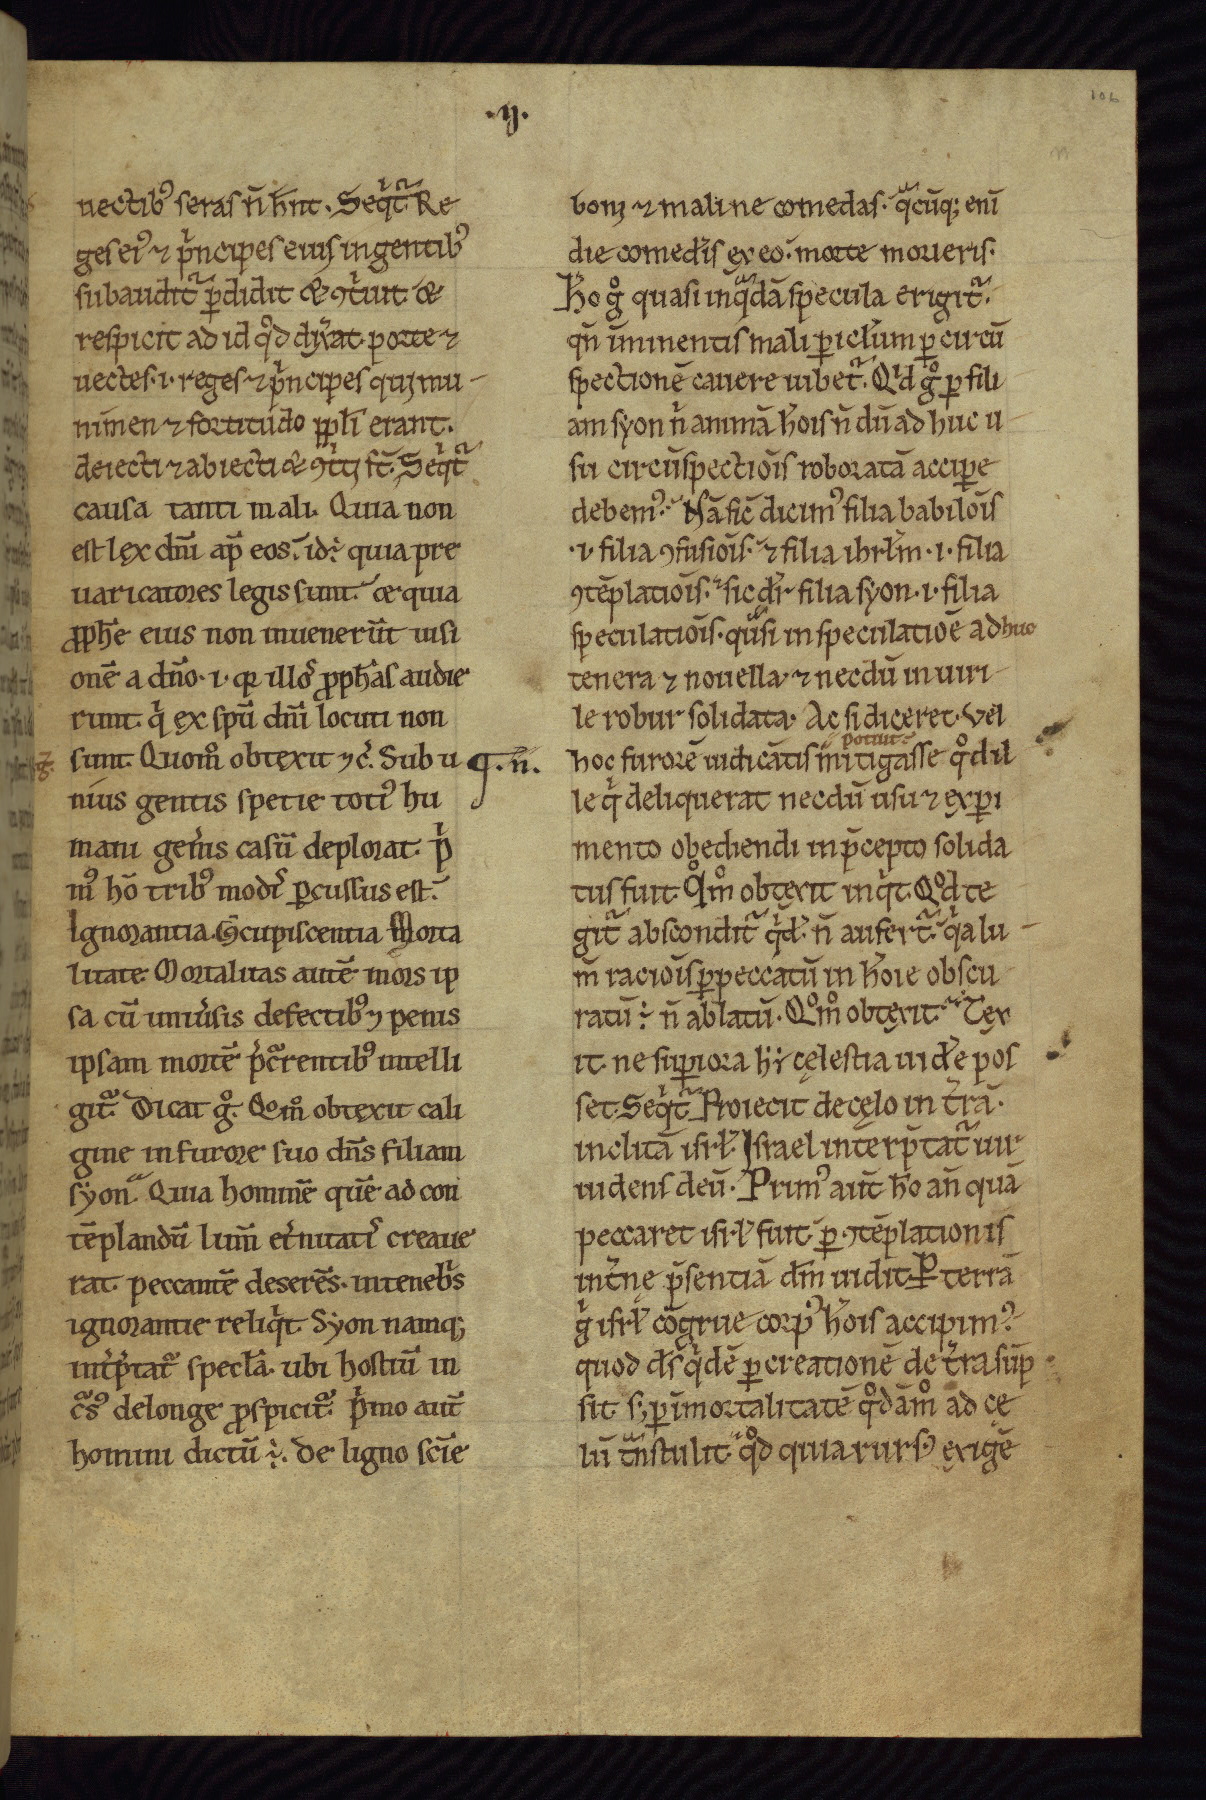 .ij.
106
uectib᷒ seras n̄ hn̄t. Seqͥtᷓ Re
ges ei᷒ ⁊ pͥncipes eius in gentib᷒
subauditᷓ ꝑdidit & ꝯtͥuit &
respicit ad id qͦd dix̾at porte ⁊
uectes .i. reges ⁊ pͥncipes qui mu
nimen ⁊ fortitudo pp̄li erant.
deiecti ⁊ abiecti & ꝯtͥti st̄. Seqͥtᷓ
causa tanti mali. Quia non
est lex dn̄i ap̄ eos. id ē quia pre
uaricatores legis sunt. & quia
ꝓphē eius non inuener̄t uisi
onē a dn̄o .i. qꝛ illoꝝ ꝓphās audie
runt. qͥ ex spū dn̄i locuti non
sunt. Quom̊ obtexit ⁊c̄. Sub u G. n̄.
nius gentis spetie toti᷒ hu
mani gen̾is casū deplorat. pͥ
m᷒ hō trib᷒ modis ꝑcussus est.
Ignorantia. Ꝯcupiscentia. Morta
litate. Mortalitas autē mors ip
sa cū uniu̾sis defectib᷒ ⁊ penis
ipsam mortē p̄cᷓrentib᷒ intelli
gitᷓ. Dicat gͦ. Qom̊ obtexit cali
gine in furore suo dn̄s filiam
syon. Quia hominē quē ad con
tēplandū lum̄ et̾nitatis creaue
rat peccantē deserēs. in tenebͥs
ignorantie reliqͥt. Syon namq;
int̾p̄tatᷓ specl̄a. ubi hostiū in
cᷓs᷒ de longe ꝓspicitᷓ. Pͥmo aut̄
homini dictū ē. De ligno scīe
boni ⁊ mali ne comedas. qᷓcūq; enī
die comed̾is ex eo. morte morieris.
Hō gͦ quasi in qᷓdā specula erigitᷓ.
qn̄ īminentis mali ꝑicl̄um ꝑ circū
spectionē cauere iubetᷓ. Qͥd gͦ ꝑ fili
am syon nͥ animā hōis n̄dū adhuc u
su circūspectiōis roboratā accipe
debem᷒. Nā sic̄ dicim᷒ filia babilōis
.i. filia ꝯfusiōis. ⁊ filia ihrl̄m .i. filia
ꝯtēplatiōis. sic dr̄ filia syon .i. filia
speculatiōis. qᷓsi in speculatiōe adhuc
tenera ⁊ nouella ⁊ necdū in uiri
le robur solidata. Ac si diceret. Vel
potuit
hoc furorē iudicātis mitigasse qͦd il
le qͥ deliquerat necdū usu ⁊ expi
mento obediendi in p̄cepto solida
tus fuit. Qͦm̊ obtexit inqͥt. Qͦd te
gitᷓ absconditᷓ qͥdē. n̄ aufertᷓ. qͥa lu
m̄ raciōis ꝑ peccatū in hōie obscu
ratū ē. n̄ ablatū. Qͦm̊ obtexit. Tex
it ne supiora hi celestia uid̾e pos
set. Seqͥtᷓ Proiecit de celo in tr̄ā.
inclitā isrl̄. Israel interp̄tatᷓ uir
uidens deū. Prim᷒ aūt hō an̄ quā
peccaret isrl̄ fuit. ꝑ ꝯtēplationis
int̾ne p̄sentiā dm̄ uidit. Per terrā
gͥ isrl̄ cōgrue corp᷒ hōis accipim᷒.
quod ds̄ qͥdē ꝑ creationē de tr̄a sūp
sit. s; ꝑ īmortalitatē qͦdām̊ ad ce
lū tᷓnstulit. qͦd quia rurs᷒ exigē